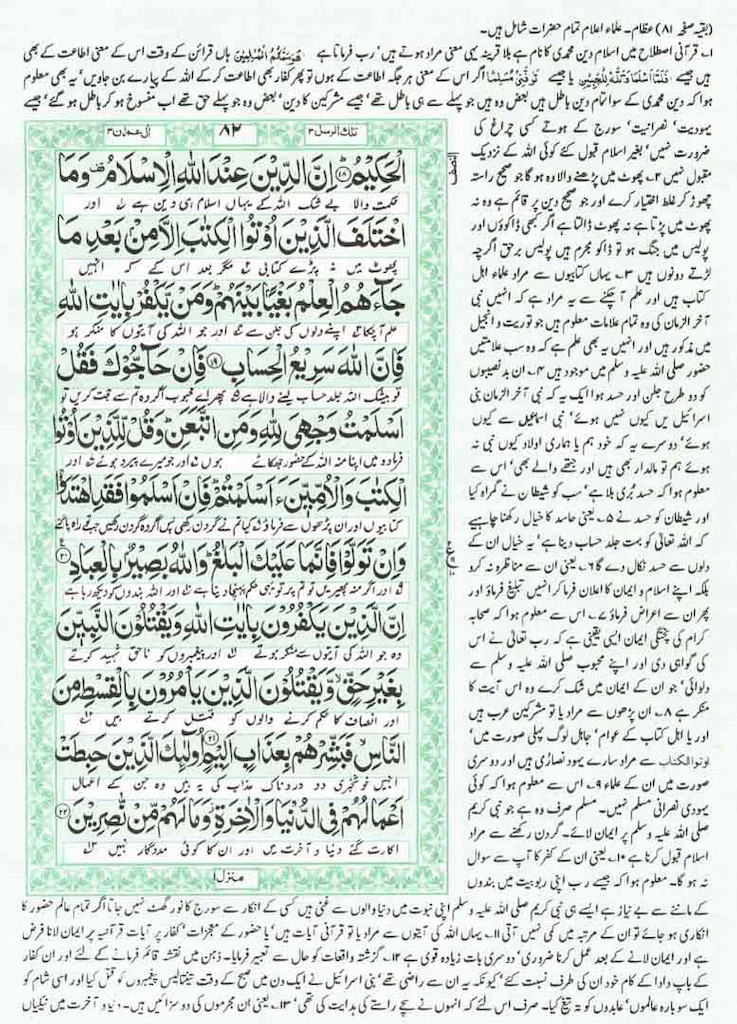 (بقیہ صفحہ ۸۱) عظام۔ علماء اعلام تمام حضرات شامل ہیں۔
۱۔ قرآنی اصطلاح میں اسلام دین محمدی کا نام ہے بلا قرینہ یہی معنی مراد ہوتے ہیں' رب فرماتا ہے هُوَ سَمّٰكُمُ الْمُسْلِمِیْنَ ہاں قرائن کے وقت اس کے معنی اطاعت کے بھی
ہیں جیسے فَلَمَّاۤ اَسْلَمَا وَتَلَّهٗ لِلْجَبِیْنِ یا جیسے تَوَفَّنِیْ مُسْلِمًا اگر اس کے معنی ہر جگہ اطاعت کے ہوں تو پھر کفار بھی اطاعت کر کے اللہ کے پیارے بن جاویں' یہ بھی معلوم
ہوا کہ دین محمدی کے سوا تمام دین باطل ہیں بعض وہ ہیں جو پہلے سے ہی باطل تھے' جیسے مشرکین کا دین' بعض وہ جو پہلے حق تھے اب منسوخ ہو کر باطل ہو گئے' جیسے
یہودیت' نصرانیت' سورج کے ہوتے کسی چراغ کی
ضرورت نہیں' بغیر اسلام قبول کئے کوئی اللہ کے نزدیک
مقبول نہیں ۲۔ پھوٹ میں پڑھنے والا وہ ہو گا جو صحیح راستہ
چھوڑ کر غلط اختیار کرے اور جو صحیح دین پر قائم ہے وہ نہ
پھوٹ میں پڑتا ہے نہ پھوٹ ڈالتا ہے اگر کبھی ڈاکوؤں اور
پولیس میں جنگ ہو تو ڈاکو مجرم ہیں پولیس برحق اگرچہ
لڑتے دونوں ہیں ۳۔ یہاں کتابیوں سے مراد علماء اہل
کتاب ہیں اور علم آ چکنے سے یہ مراد ہے کہ انہیں نبی
آخر الزمان کی وہ تمام علامات معلوم ہیں جو توریت و انجیل
میں مذکور ہیں اور انہیں یہ بھی علم ہے کہ وہ سب علامتیں
حضور صلی اللہ علیہ وسلم میں موجود ہیں ۴۔ ان بدنصیبوں
کو دو طرح جلن اور حسد ہوا ایک یہ کہ نبی آخر الزمان بنی
اسرائیل میں کیوں نہیں ہوئے' بنی اسماعیل سے کیوں
ہوئے' دوسرے یہ کہ خود ہم یا ہماری اولاد کیوں نبی نہ
ہوئے ہم تو مالدار بھی ہیں اور جتھے والے بھی' اس سے
معلوم ہوا کہ حسد بری بلا ہے' سب کو شیطان نے گمراہ کیا
اور شیطان کو حسد نے ۵۔ یعنی حاسد کا خیال رکھنا چاہیے
کہ اللہ تعالیٰ کو بہت جلد حساب دینا ہے' یہ خیال ان کے
دلوں سے حسد نکال دے گا ۶۔ یعنی ان سے مناظرہ نہ کرو
بلکہ اپنے اسلام و ایمان کا اعلان فرما کر انہیں تبلیغ فرماؤ اور
پھر ان سے اعراض فرماؤ ۷۔ اس سے معلوم ہوا کہ صحابہ
کرام کی پختگی ایمان ایسی یقینی ہے کہ رب تعالیٰ نے اس
کی گواہی دی اور اپنے محبوب صلی اللہ علیہ وسلم سے
دلوائی' جو ان کے ایمان میں شک کرے وہ اس آیت کا
منکر ہے ۸۔ ان پڑھوں سے مراد یا تو مشرکین عرب ہیں
اور یا اہل کتاب کے عوام' جاہل لوگ پہلی صورت میں'
اوتوا الکتاب سے مراد سارے یہود نصاریٰ ہیں اور دوسری
صورت میں ان کے علماء ۹۔ اس سے معلوم ہوا کہ کوئی
یہودی نصرانی مسلم نہیں۔ مسلم صرف وہ ہے جو نبی کریم
صلی اللہ علیہ وسلم پر ایمان لائے۔ گردن رکھنے سے مراد
اسلام قبول کرنا ہے ۱۰۔ یعنی ان کے کفر کا آپ سے سوال
نہ ہو گا۔ معلوم ہوا کہ جیسے رب اپنی ربوبیت میں بندوں
تلك الرسل ۳ ۸۲ اٰل عمران ۳
الْحَكِیْمُ ﴿۱۸﴾ اِنَّ الدِّیْنَ عِنْدَ اللّٰهِ الْاِسْلَامُ وَمَا
حکمت والا بے شک اللہ کے یہاں اسلام ہی دین ہے اور
اخْتَلَفَ الَّذِیْنَ اُوْتُوا الْكِتٰبَ اِلَّا مِنْۢ بَعْدِ مَا
پھوٹ میں نہ پڑے کتابی مگر بعد اس کے کہ انہیں
جَآءَهُمُ الْعِلْمُ بَغْیًۢا بَیْنَهُمْ وَمَنْ یَّكْفُرْ بِاٰیٰتِ اللّٰهِ
علم آچکا اپنے دلوں کی جلن سے اور جو اللہ کی آیتوں کا منکر ہو
فَاِنَّ اللّٰهَ سَرِیْعُ الْحِسَابِ ﴿۱۹﴾ فَاِنْ حَآجُّوْكَ فَقُلْ
تو بیشک اللہ جلد حساب لینے والا ہے پھر اے محبوب اگر وہ تم سے حجت کریں تو
اَسْلَمْتُ وَجْهِیَ لِلّٰهِ وَمَنِ اتَّبَعَنِ وَقُلْ لِّلَّذِیْنَ اُوْتُوا
فرمادو میں اپنا منہ اللہ کے حضور جھکائے ہوں اور جو میرے پیرو ہوئے اور
الْكِتٰبَ وَالْاُمِّیّٖنَ ءَاَسْلَمْتُمْ فَاِنْ اَسْلَمُوْا فَقَدِ اهْتَدَوْا
کتابیوں اور ان پڑھوں سے فرماؤ کیا تم نے گردن رکھی پس اگر وہ گردن رکھیں جب تو راہ پا گئے
وَاِنْ تَوَلَّوْا فَاِنَّمَا عَلَیْكَ الْبَلٰغُ وَاللّٰهُ بَصِیْرٌۢ بِالْعِبَادِ ﴿۲۰﴾
اور اگر منہ پھیریں تو تم پر تو یہی حکم پہنچا دینا ہے اور اللہ بندوں کو دیکھ رہا ہے
اِنَّ الَّذِیْنَ یَكْفُرُوْنَ بِاٰیٰتِ اللّٰهِ وَیَقْتُلُوْنَ النَّبِیّٖنَ
وہ جو اللہ کی آیتوں سے منکر ہوتے اور پیغمبروں کو ناحق شہید کرتے
بِغَیْرِ حَقٍّ وَّیَقْتُلُوْنَ الَّذِیْنَ یَاْمُرُوْنَ بِالْقِسْطِ مِنَ
اور انصاف کا حکم کرنے والوں کو قتل کرتے ہیں
النَّاسِ فَبَشِّرْهُمْ بِعَذَابٍ اَلِیْمٍ ﴿۲۱﴾ اُولٰٓئِكَ الَّذِیْنَ حَبِطَتْ
انہیں خوشخبری دو دردناک عذاب کی یہ ہیں وہ جن کے اعمال
اَعْمَالُهُمْ فِی الدُّنْیَا وَالْاٰخِرَةِ وَمَا لَهُمْ مِّنْ نّٰصِرِیْنَ ﴿۲۲﴾
اکارت گئے دنیا و آخرت میں اور ان کا کوئی مددگار نہیں
منزل ۱
النصف
کے ماننے سے بے نیاز ہے ایسے ہی نبی کریم صلی اللہ علیہ وسلم اپنی نبوت میں دنیا والوں سے غنی ہیں کسی کے انکار سے سورج کا نور گھٹ نہیں جاتا اگر تمام عالم حضور کا
انکاری ہو جائے تو ان کے مرتبہ میں کمی نہیں آتی ۱۱۔ یہاں اللہ کی آیتوں سے مراد یا تو قرآنی آیات ہیں' یا حضور کے معجزات' کفار پر آیات قرآنیہ پر ایمان لانا فرض
ہے اور ایمان لانے کے بعد عمل کرنا ضروری' دوسری بات زیادہ قوی ہے ۱۲۔ گزشتہ واقعات کو حال سے تعبیر فرمایا۔ ذہن میں نقشہ قائم فرمانے کے لئے اور ان کفار
کے باپ دادا کے کام خود ان کی طرف نسبت کئے' کیونکہ یہ ان سے راضی تھے' بنی اسرائیل نے ایک دن میں صبح کے وقت تینتالیس پیغمبروں کو قتل کیا اور اسی شام کو
ایک سو بارہ عالموں' عابدوں کو تہ تیغ کیا۔ صرف اس لئے کہ انہوں نے سچے راستے کی ہدایت کی تھی' ۱۳۔ یعنی ان مجرموں کی دو سزائیں ہیں۔ دنیا و آخرت میں نیکیاں